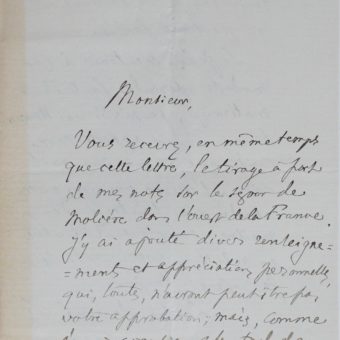 Monsieur,
Vous recevrez, en même temps
que cette lettre, le tirage à part
de mes notes sur le séjour de
Molière dans l'ouest de la France.
J'y ai ajouté divers renseigne=
=ments et appréciations personnelles,
qui, toutes, n'auront peut être pas
votre approbation; mais, comme